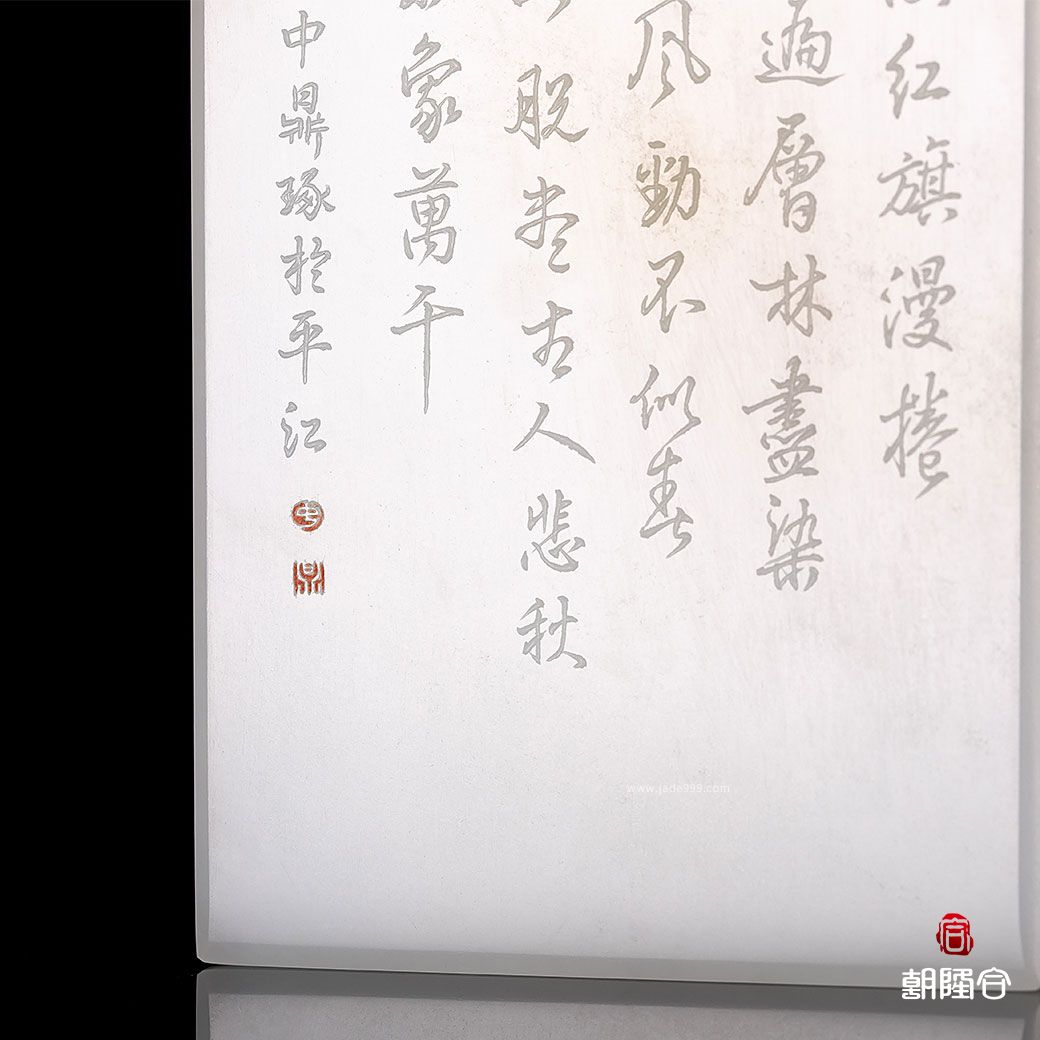 红旗漫捲
遍層林盡染
风勁不似春
脱尽古人悲秋
象萬千
中鼎琢於平江
中
鼎
www.jade999.com
朝隆合